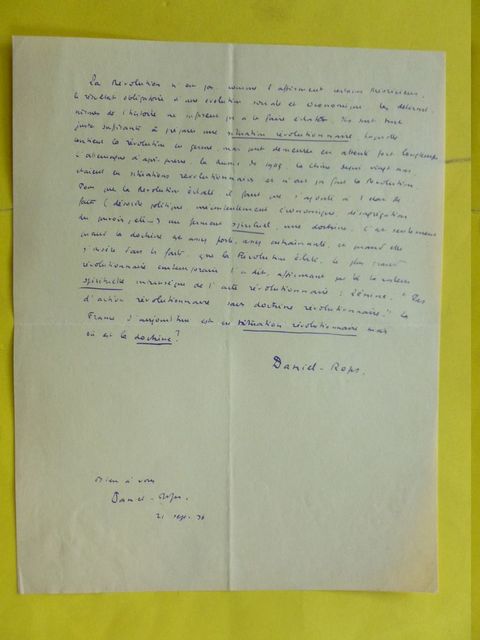 La Révolution n'est pas, comme l'affirment certains théoriciens,
le résultat obligatoire d'une évolution sociale et économique. Les détermi-
nismes de l'histoire ne suffisent pas à la faire éclater. Ils sont tout
juste suffisants à préparer une situation révolutionnaire, laquelle
contient la révolution en germe, mais peut demeurer en attente fort longtemps
L'Allemagne d'après guerre, la Russie de 1905, la Chine depuis vingt ans
étaient en situations révolutionnaires et n'ont pas fait la Révolution
Pour que la Révolution éclate il faut que s'ajoute à l'état de
faits (désordre politique, mécontentement économique, désagrégation
du pouvoir, etc..) un ferment spirituel, une doctrine. C'est seulement
quand la doctrine est assez forte, assez entraînante, et quand elle
s'insère dans les faits, que la Révolution éclate. Le plus grand
révolutionnaire contemporain l'a dit, affirmant par là la valeur
spirituelle intrinsèque de l'acte révolutionnaire : Lénine. "Pas
d'action révolutionnaire sans doctrine révolutionnaire." La
France d'aujourd'hui est en situation révolutionnaire mais
où est la doctrine ?
Daniel-Rops.
Bien à vous
Daniel-Rops.
21 sept. 36